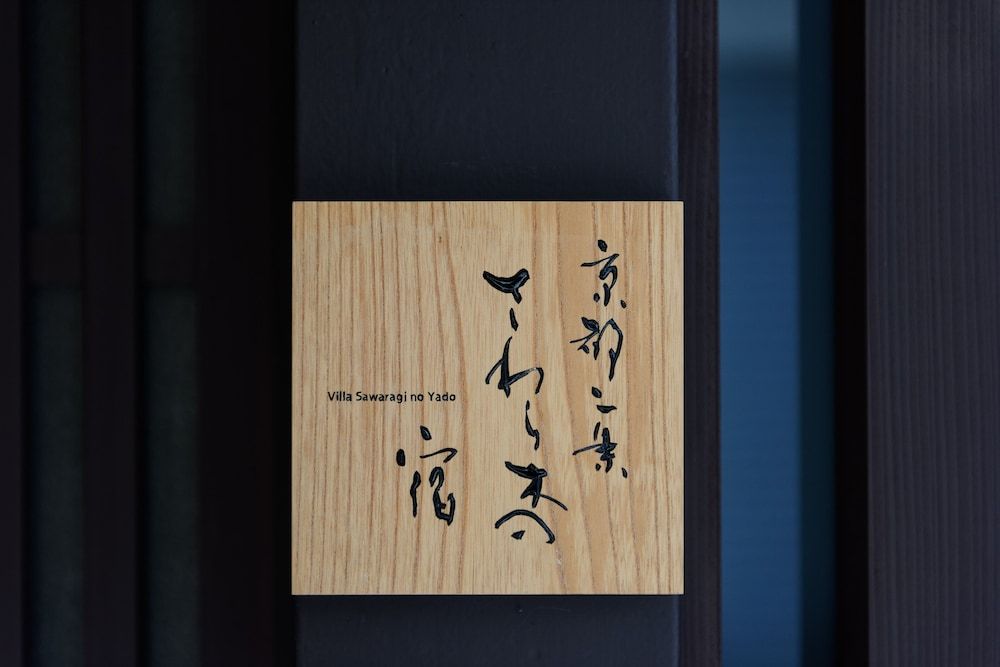 京都二条
さわら木の
宿
Villa Sawaragi no Yado